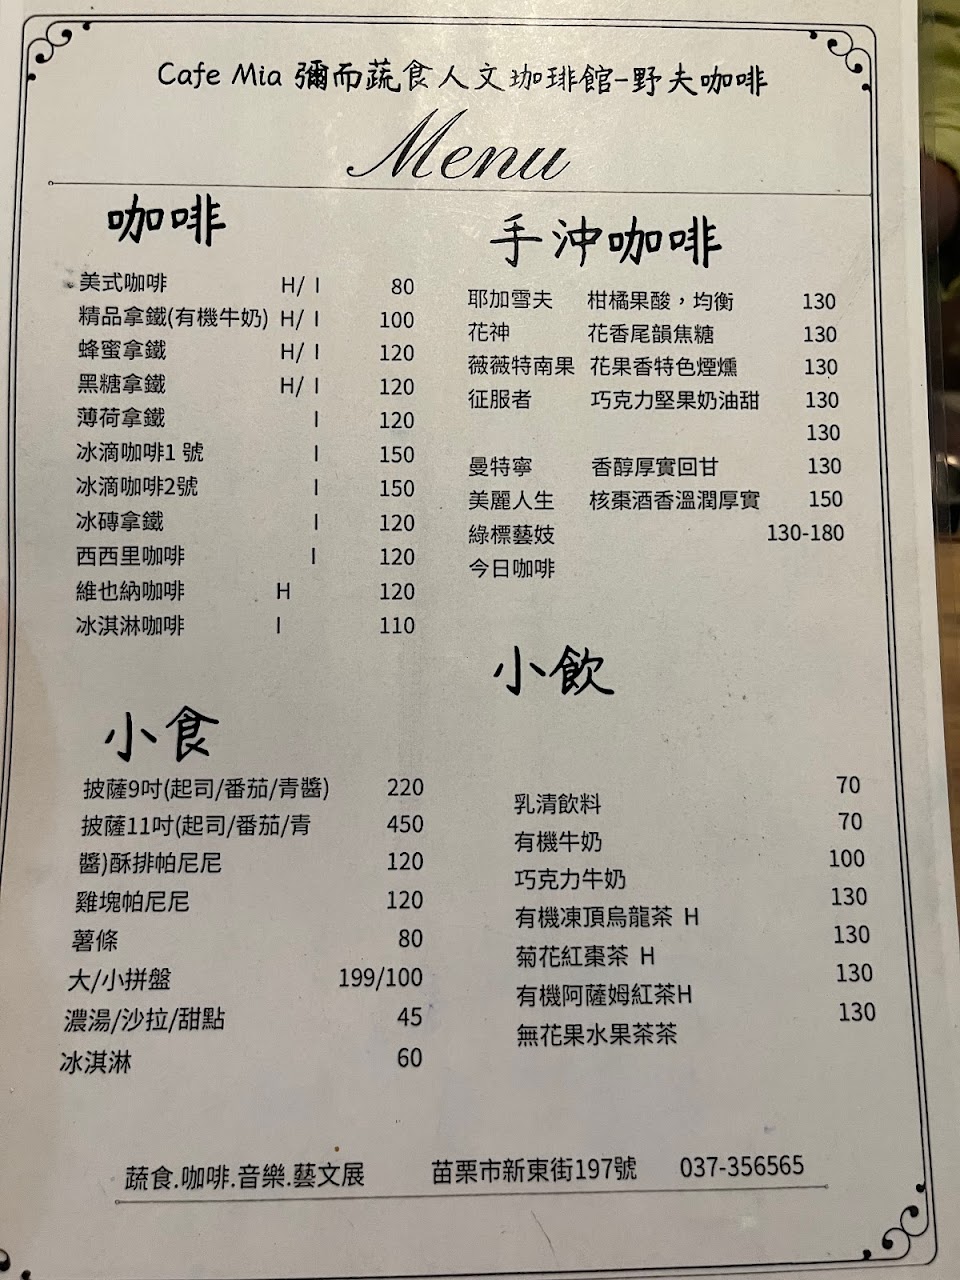 Cafe Mia 彌而蔬食人文珈琲館-野夫咖啡
Menu
咖啡
美式咖啡 H/ I 80
精品拿鐵(有機牛奶) H/ I 100
蜂蜜拿鐵 H/ I 120
黑糖拿鐵 H/ I 120
薄荷拿鐵 I 120
冰滴咖啡1 號 I 150
冰滴咖啡2號 I 150
冰磚拿鐵 I 120
西西里咖啡 I 120
維也納咖啡 H 120
冰淇淋咖啡 I 110
手沖咖啡
耶加雪夫 柑橘果酸，均衡 130
花神 花香尾韻焦糖 130
薇薇特南果 花果香特色煙燻 130
征服者 巧克力堅果奶油甜 130
130
曼特寧 香醇厚實回甘 130
美麗人生 核棗酒香溫潤厚實 150
綠標藝妓 130-180
今日咖啡
小食
披薩9吋(起司/番茄/青醬) 220
披薩11吋(起司/番茄/青 450
醬)酥排帕尼尼 120
雞塊帕尼尼 120
薯條 80
大/小拼盤 199/100
濃湯/沙拉/甜點 45
冰淇淋 60
小飲
乳清飲料 70
有機牛奶 70
巧克力牛奶 100
有機凍頂烏龍茶 H 130
菊花紅棗茶 H 130
有機阿薩姆紅茶H 130
無花果水果茶茶 130
蔬食.咖啡.音樂.藝文展 苗栗市新東街197號 037-356565